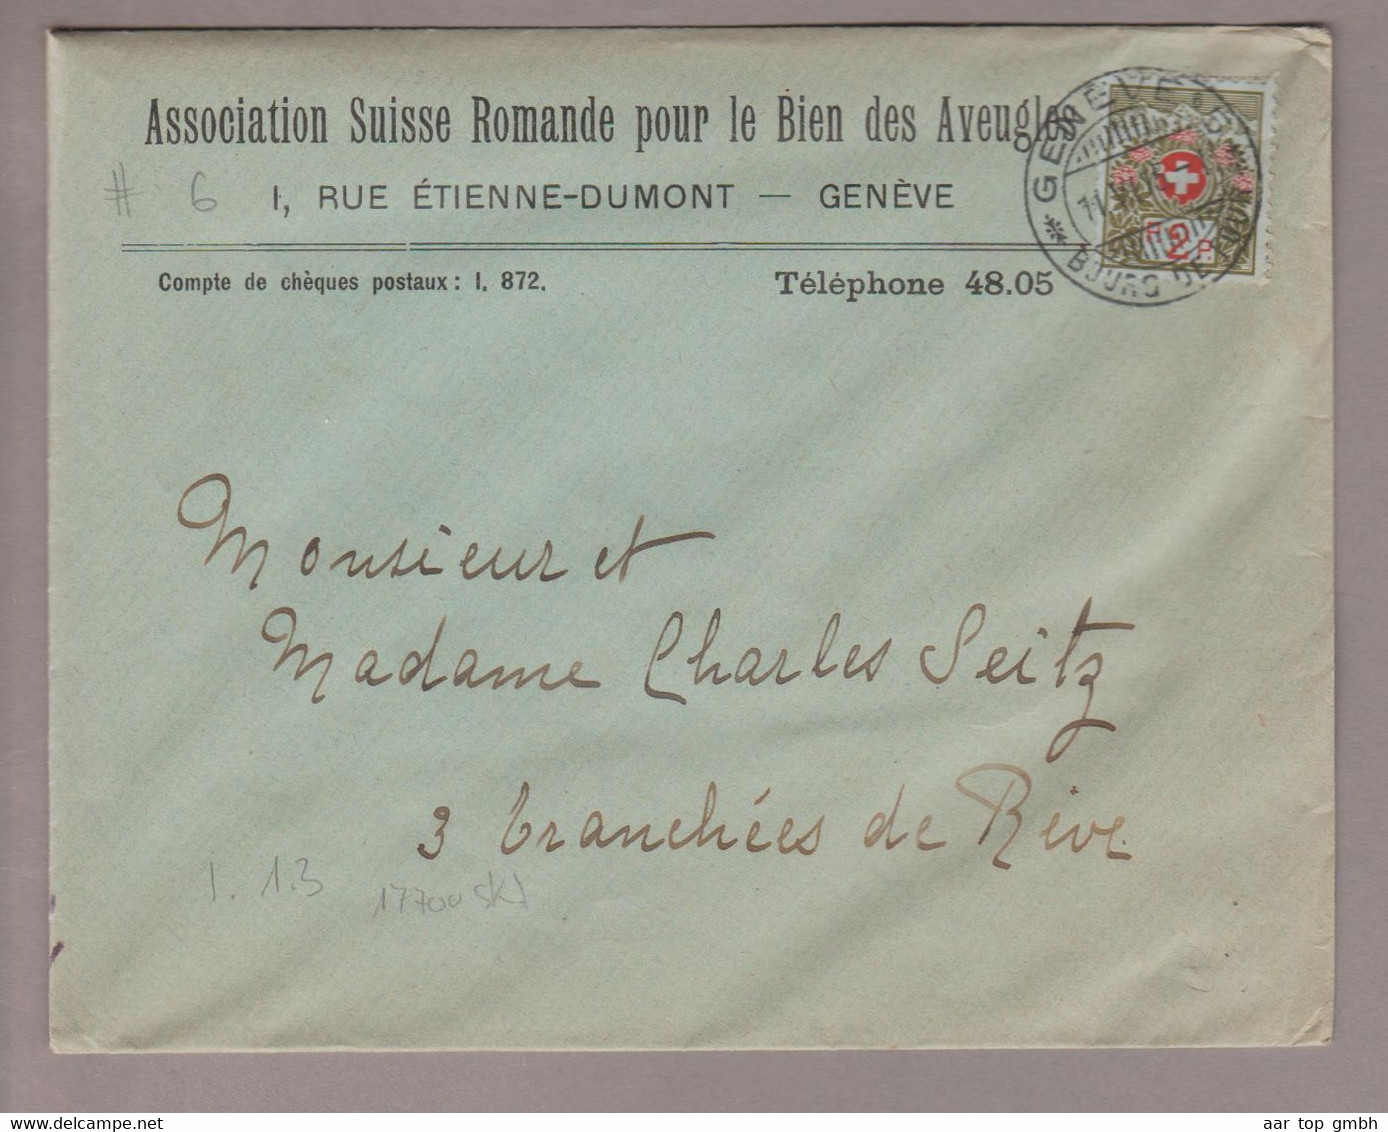 Association Suisse Romande pour le Bien des Aveugles
# 6 1, RUE ÉTIENNE-DUMONT — GENÈVE
Compte de chèques postaux : I. 872.
Téléphone 48.05
GENÈVE
BOURG-DE-FOUR
2
Monsieur et
Madame Charles Seitz
3 tranchées de Rive.
1.13
aar top gmbh
www.delcampe.net